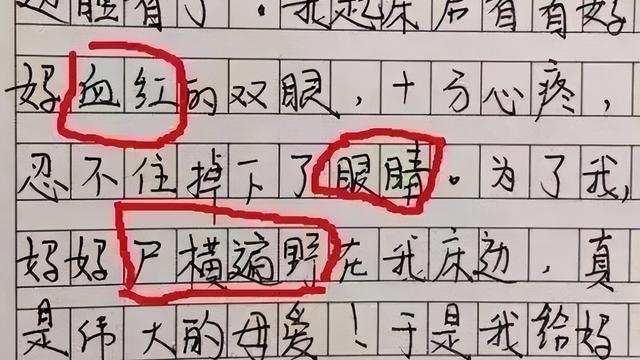 边睡着了.我起床后看看妈
妈血红的双眼，十分心疼，
忍不住掉下了眼睛。为了我，
妈妈尸横遍野在我床边，真
是伟大的母爱！于是我给妈